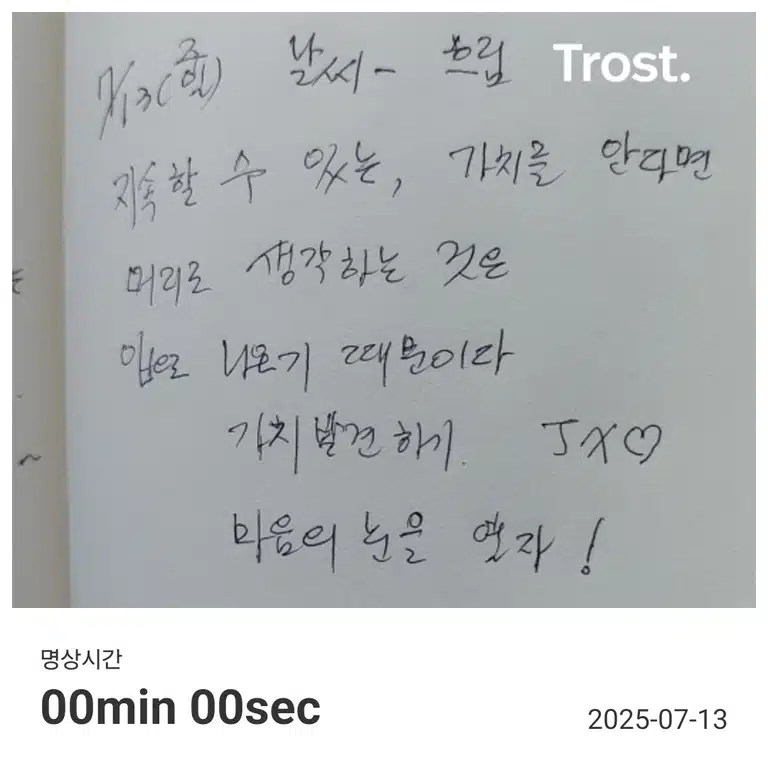 7/13(주일) 날씨- 흐림 Trost.
지속할 수 있는, 가치를 안다면
머리로 생각하는 것은
입으로 나오기 때문이다
가치 발견하기. J X ♡
마음의 눈을 열자!
명상시간
00min 00sec
2025-07-13